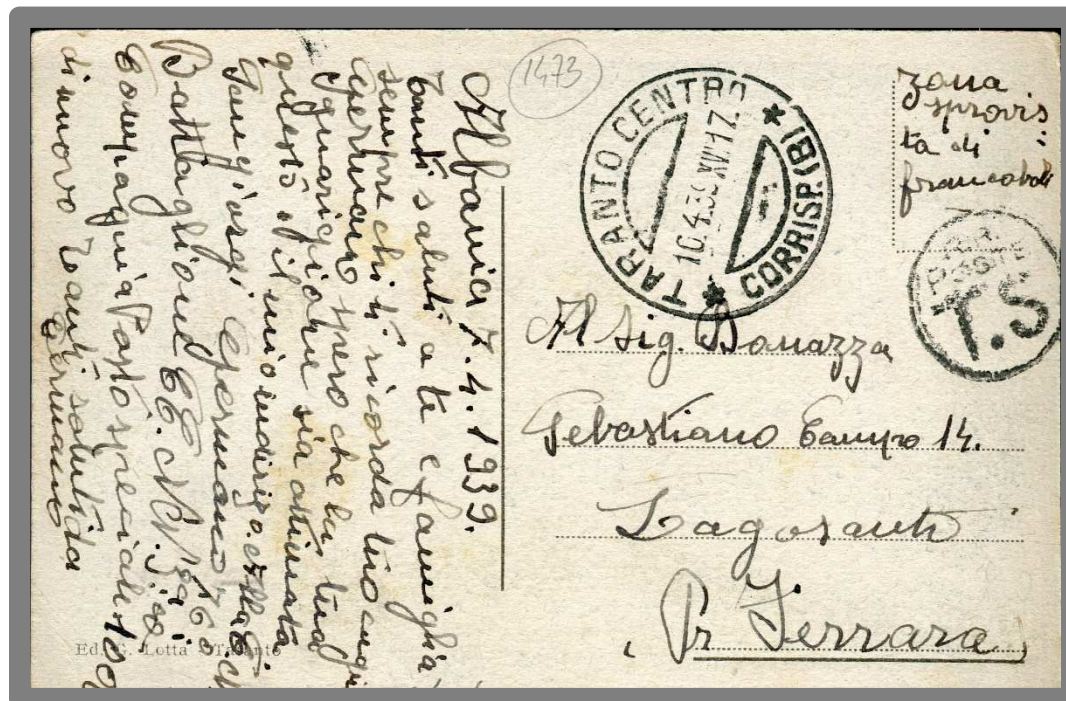 1473
Albania 7.4.1939.
Tanti saluti a te e famiglia,
sempre chi ti ricorda tuo cugi
Germano spero che la tua
sguarigione sia ottimata
questo, il mio indirizo.
Germano
Battaglione CC. NN.
Compagnia Posto speciale 100
di nuovo Tanti saluti da
Germano
Ed. G. Lotta - Taranto
TARANTO CENTRO
* CORRISP. PACCHI *
10.4.39 XVII 17
zona
sprovis
ta di
francobolli
T.S
Al Sig. Bonazza
Sebastiano Campo 14.
Lagosanto
Pr Ferrara